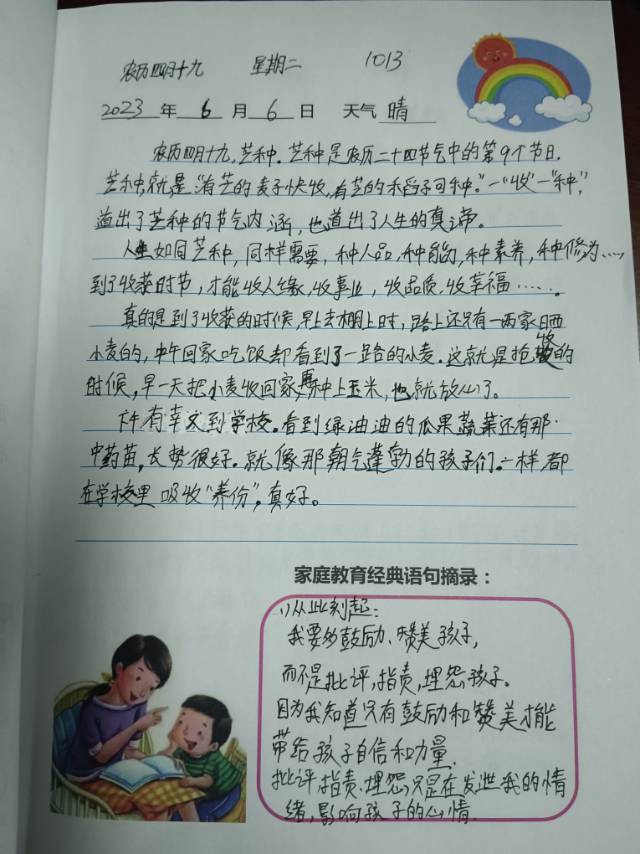 农历四月十九 星期二 1013
2023 年 6 月 6 日 天气 晴
农历四月十九,芒种。芒种是农历二十四节气中的第9个节日.
芒种,就是“有芒的麦子快收,有芒的稻子可种。”一“收”一“种”,
道出了芒种的节气内涵,也道出了人生的真谛。
人生如同芒种,同样需要,种人品,种育能,种素养,种修为……,
到了收获时节,才能收人缘,收事业,收品质,收幸福……。
真的是到了收获的时候,早上去棚上时,路上还只有一两家晒
小麦的,中午回家吃饭却看到了一路的小麦。这就是抢收的
时候,早一天把小麦收回家,再种上玉米,也就放心了。
下午有幸又到学校。看到绿油油的瓜果蔬菜还有那
中药苗,长势很好。就像那朝气蓬勃的孩子们一样,都
在学校里吸收“养份”,真好。
家庭教育经典语句摘录:
1)从此刻起:
我要多鼓励、赞美孩子,
而不是批评,指责,埋怨孩子。
因为我知道只有鼓励和赞美才能
带给孩子自信和力量.
批评、指责、埋怨只是在发泄我的情
绪,影响孩子的心情.